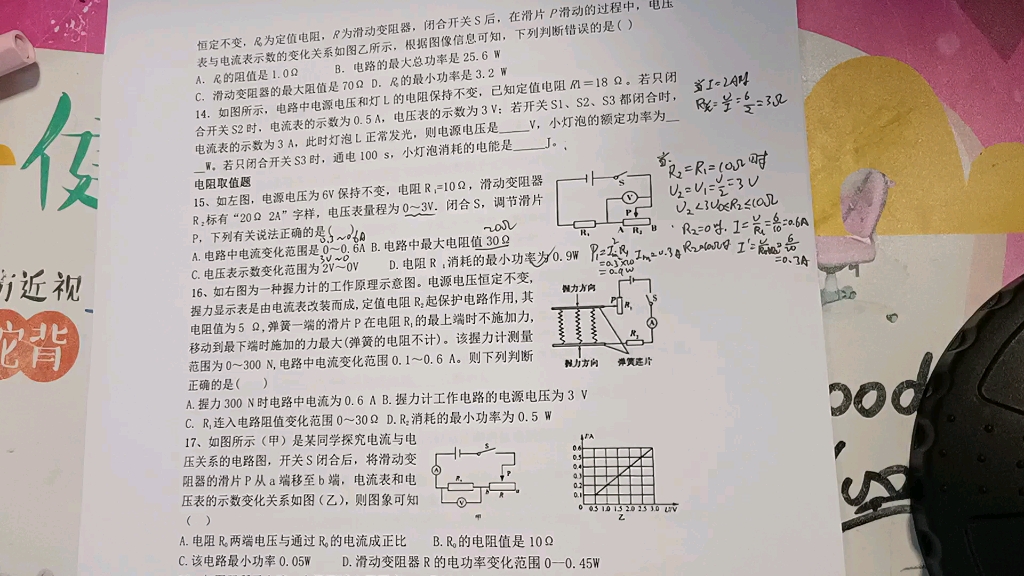 恒定不变，R₀为定值电阻，R为滑动变阻器，闭合开关S后，在滑片P滑动的过程中，电压
表与电流表示数的变化关系如图乙所示，根据图像信息可知，下列判断错误的是( )
A．R₀的阻值是1.0Ω B．电路的最大总功率是25.6 W
C．滑动变阻器的最大阻值是70Ω D．R₀的最小功率是3.2 W
14．如图所示，电路中电源电压和灯L的电阻保持不变，已知定值电阻R1＝18 Ω。若只闭
合开关S2时，电流表的示数为0.5 A，电压表的示数为3 V；若开关S1、S2、S3都闭合时，
电流表的示数为3 A，此时灯泡L正常发光，则电源电压是____V，小灯泡的额定功率为__
__W。若只闭合开关S3时，通电100 s，小灯泡消耗的电能是____J。
电阻取值题
15、如左图，电源电压为6V保持不变，电阻R₁=10Ω，滑动变阻器
R₂标有“20Ω 2A”字样，电压表量程为0～3V．闭合S，调节滑片
P，下列有关说法正确的是( )
A.电路中电流变化范围是0～0.6A B.电路中最大电阻值30Ω
C.电压表示数变化范围为2V～0V D.电阻R₁消耗的最小功率为0.9W
16、如右图为一种握力计的工作原理示意图。电源电压恒定不变，
握力显示表是由电流表改装而成，定值电阻R₂起保护电路作用，其
电阻值为5 Ω，弹簧一端的滑片P在电阻R₁的最上端时不施加力，
移动到最下端时施加的力最大(弹簧的电阻不计)。该握力计测量
范围为0～300 N，电路中电流变化范围0.1～0.6 A。则下列判断
正确的是( )
A.握力300 N时电路中电流为0.6 A B.握力计工作电路的电源电压为3 V
C. R₁连入电路阻值变化范围0～30Ω D.R₂消耗的最小功率为0.5 W
17、如图所示（甲）是某同学探究电流与电
压关系的电路图，开关S闭合后，将滑动变
阻器的滑片P从a端移至b端，电流表和电
压表的示数变化关系如图(乙)，则图象可知
( )
A.电阻R₀两端电压与通过R₀的电流成正比 B.R₀的电阻值是10Ω
C.该电路最小功率0.05W D.滑动变阻器R的电功率变化范围0—0.45W
当I=2A时
=U/I=6/2=3Ω
当
R₂=R₁=10Ω时
U₂=U₁=U/2=3V
U₂<3V 0≤R₂≤10Ω
R₂=0时，I=U/R₁=6/10=0.6A
=0.3A
0.3～0.6A
3V～0
20Ω
=0.3²×10
=0.9W
S
V
P
R₁ A R₂ B
握力方向
P R₁ S
A
R₂
握力方向 弹簧连片
S
A
R₀ P
b R a
V
甲
I/A
0.6
0.5
0.4
0.3
0.2
0.1
0 0.5 1.0 1.5 2.0 2.5 3.0 U/V
乙
近视
驼背
ood